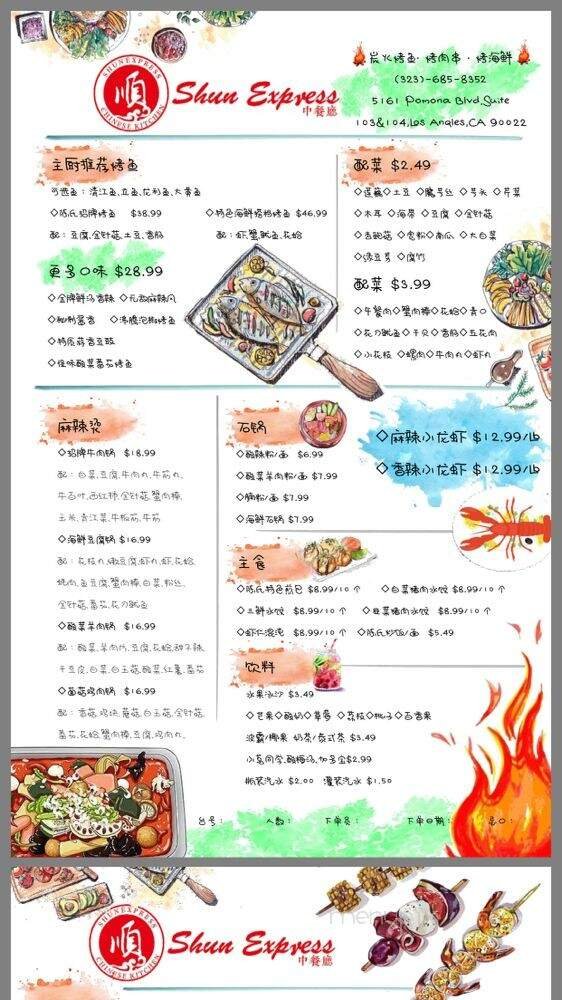 SHUNEXPRESS
順
CHINESE KITCHEN
Shun Express
中餐廳
炭火烤鱼·烤肉串·烤海鲜
(323)-685-8352
5161 Pomona Blvd,Suite
103&104,Los Angles,CA 90022
主厨推荐烤鱼
可选鱼：清江鱼,立鱼,花利鱼,大黄鱼
◇陈氏招牌烤鱼 $38.99
◇特色海鲜搭档烤鱼 $46.99
配：豆腐,金针菇,土豆,香肠
配：虾,蟹,鱿鱼,花蛤
更多口味 $28.99
◇金牌鲜汤香辣 ◇元教麻辣风
◇秘制酱香 ◇沸腾泡椒烤鱼
◇特质蒜香豆豉
◇怪味酸菜番茄烤鱼
配菜 $2.49
◇莲藕◇土豆 ◇魔芋丝 ◇芋头 ◇芹菜
◇木耳 ◇海带 ◇豆腐 ◇金针菇
◇杏鲍菇 ◇宽粉◇南瓜 ◇大白菜
◇绿豆芽 ◇腐竹
配菜 $3.99
◇午餐肉◇蟹肉棒◇花蛤◇青口
◇花刀鱿鱼◇干贝 ◇香肠◇五花肉
◇小花枝 ◇螺肉◇牛肉丸◇虾丸
麻辣烫
◇招牌牛肉锅 $18.99
配：白菜,豆腐,牛肉丸,牛筋丸,
牛百叶,西红柿,金针菇,蟹肉棒,
玉米,青江菜,牛板筋,牛筋
◇海鲜豆腐锅 $16.99
配：花枝丸,嫩豆腐,虾丸,虾,花蛤
鱼豆腐,蟹肉棒,白菜,粉丝,
金针菇,番茄,花刀鱿鱼
◇酸菜羊肉锅 $16.99
干豆皮,白菜,白玉菇,酸菜,红薯,番茄
◇菌菇鸡肉锅 $16.99
配：香菇,鸡块,蘑菇,白玉菇,金针菇,
番茄,花蛤,蟹肉棒,豆腐,鸡肉丸,
石锅
◇酸辣粉/面 $6.99
◇酸菜羊肉粉/面 $7.99
◇腩粉/面 $7.99
◇海鲜石锅 $7.99
◇麻辣小龙虾 $12.99/Lb
◇香辣小龙虾 $12.99/Lb
主食
◇陈氏特色煎包 $8.99/10个 ◇白菜猪肉水饺 $8.99/10个
◇三鲜水饺 $8.99/10个 ◇韭菜猪肉水饺 $8.99/10个
◇虾仁混沌 $8.99/10个 ◇陈氏炒饭/面 $5.49
饮料
水果冰沙 $3.49
◇芒果◇酸奶◇草莓 ◇荔枝◇桃子◇百香果
波霸/椰果 奶茶/泰式茶 $3.49
小茗同学,酸梅汤,加多宝$2.99
瓶装汽水 $2.00 灌装汽水 $1.50
台号： 人数： 下单员： 下单日期：
SHUNEXPRESS
順
CHINESE KITCHEN
Shun Express
中餐廳